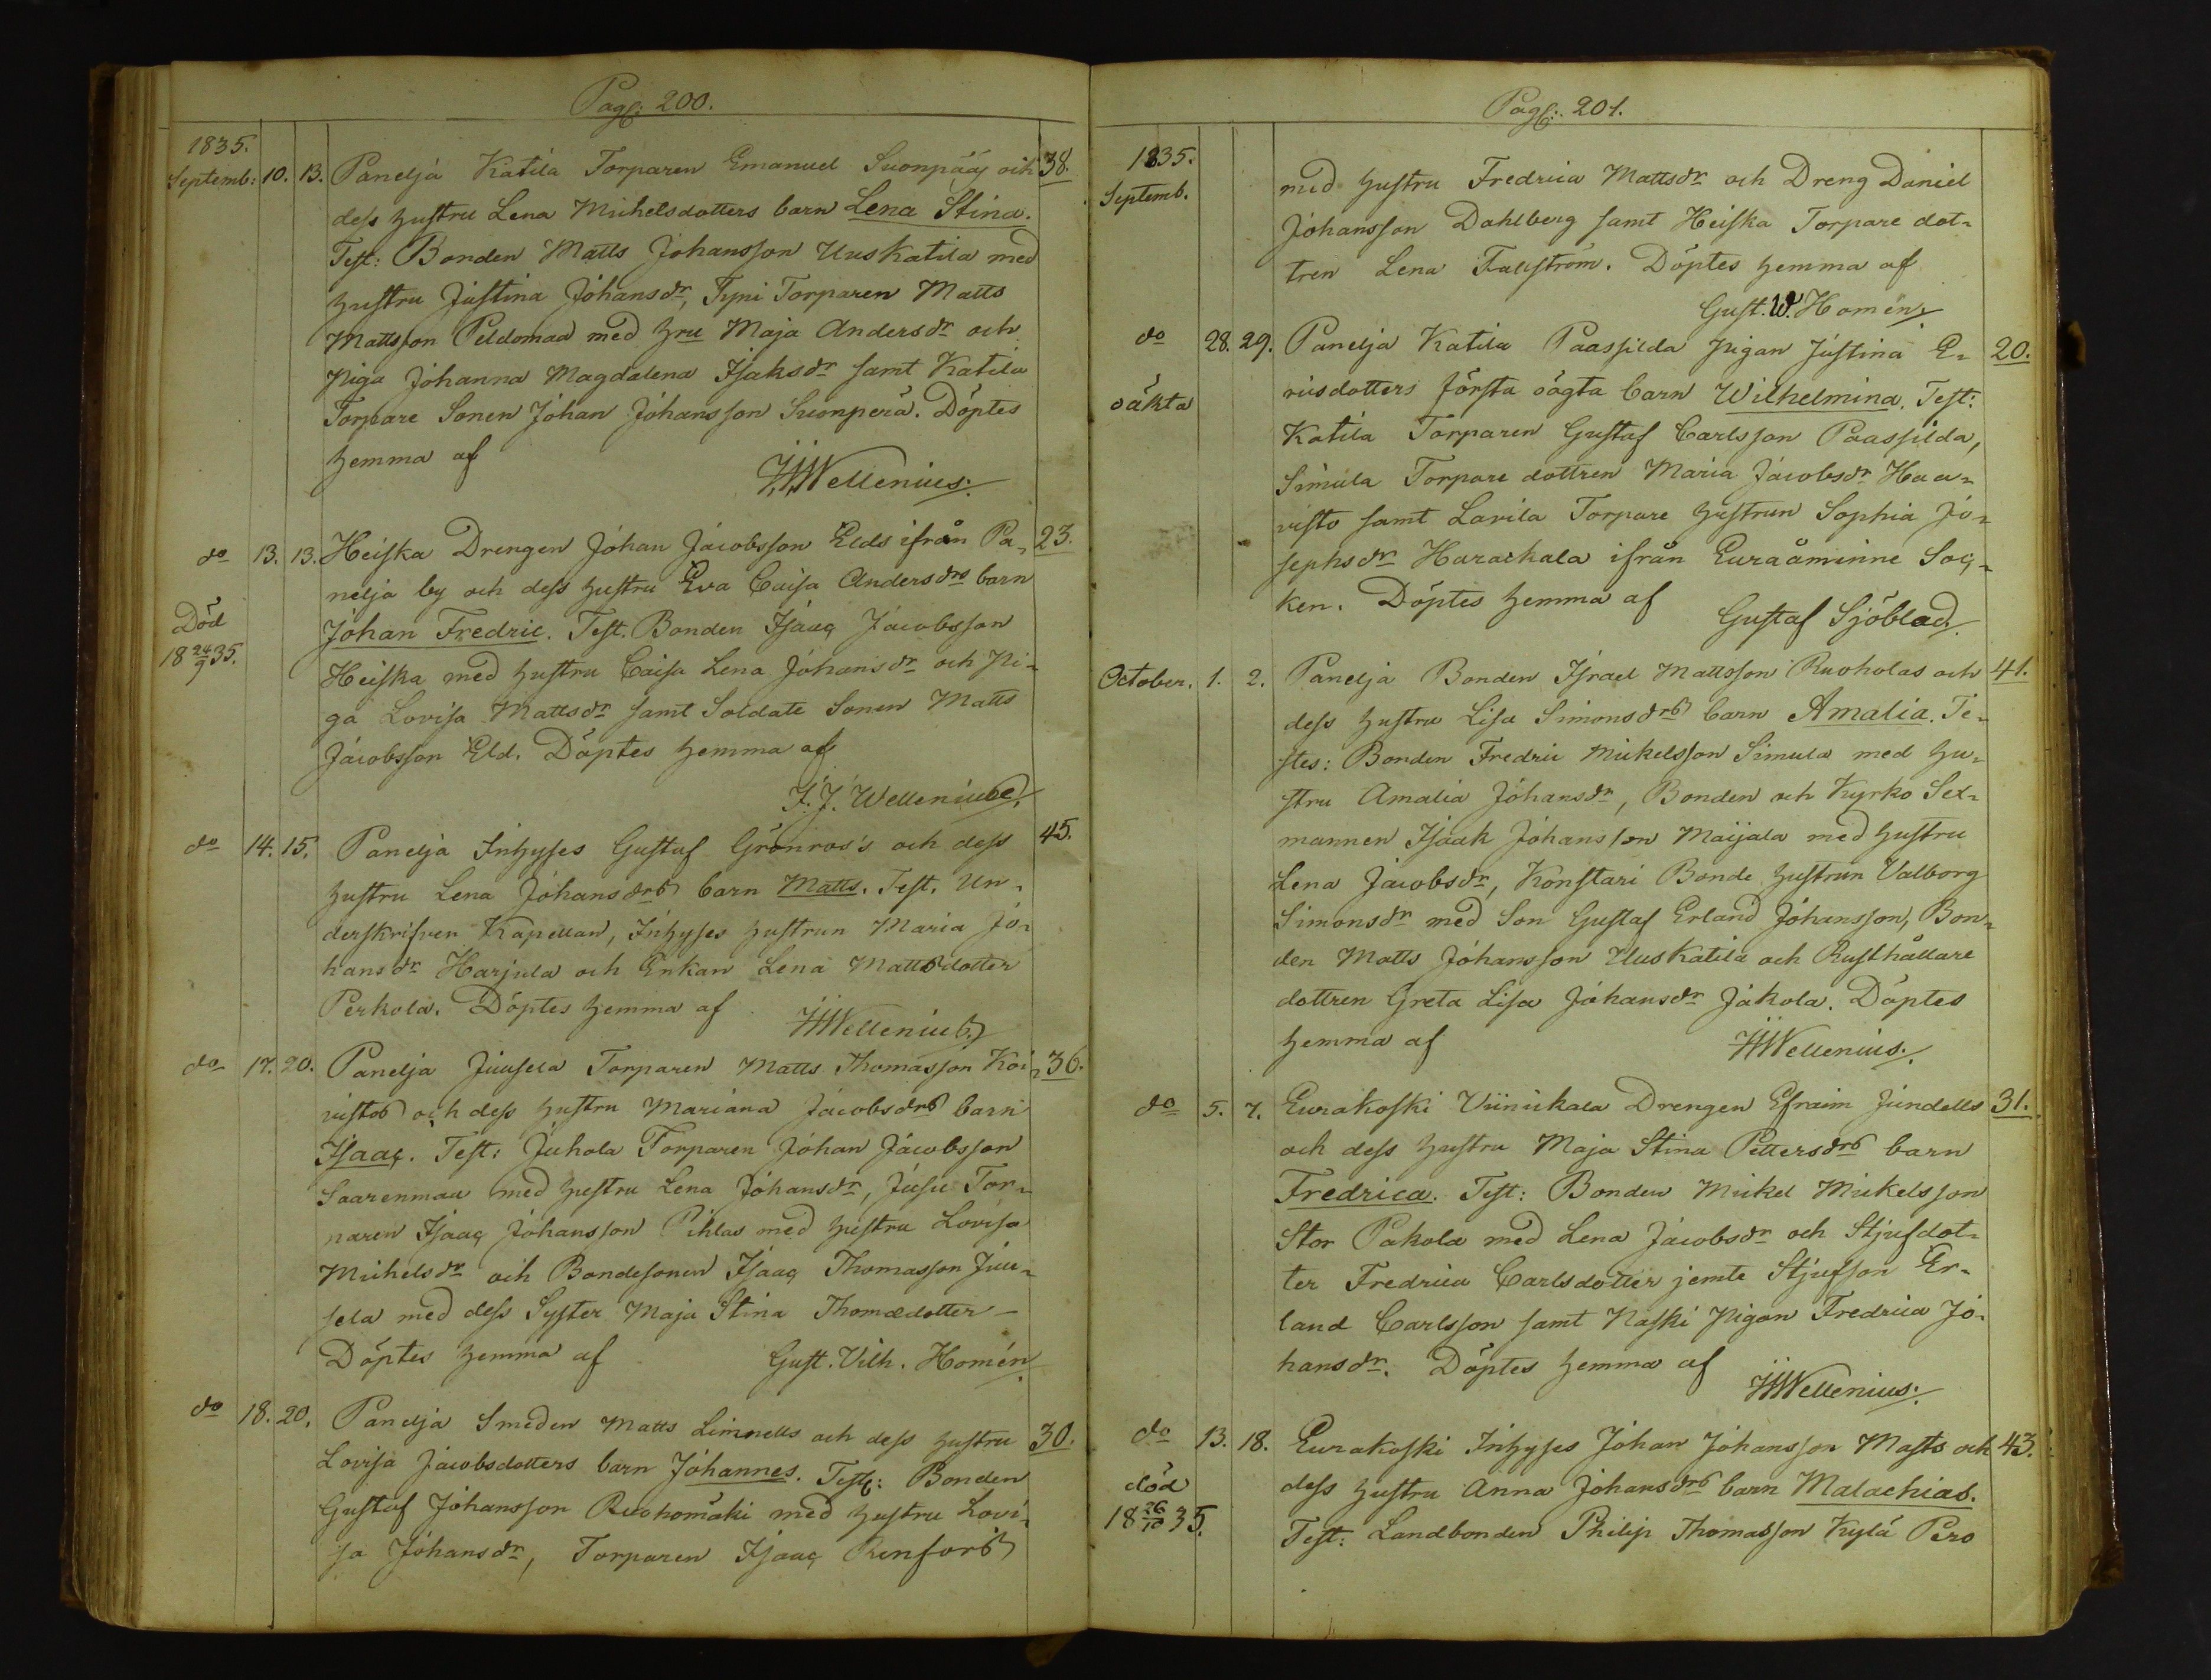 Pag: 200.
1835.
Septemb: 10. 13. Panelja Katila Torparen Emanuel Suonpääs och 38.
dess hustru Lena Michelsdotters barn Lena Stina.
Test: Bonden Matts Johansson Uuskatila med
hustru Justina Johansdr, Typi Torparen Matts
Mattsson Peldomaa med hru Maja Andersdr och
Piga Johanna Magdalena Isaksdr samt Katila
Torpare Sonen Johan Johansson Suonperä. Döptes
hemma af
JJWellenius.
do 13. 13. Heiska Drengen Johan Jacobsson Elds ifrån Pa- 23.
nelja by och dess hustru Eva Caisa Andersdrs barn
Död
Johan Fredric. Test. Bonden Isaac Jacobsson
18 24/9 35.
Heiska med hustru Caisa Lena Johansdr och Pi-
ga Lovisa Mattsdr samt Soldate Sonen Matts
Jacobsson Eld. Döptes hemma af
J. J. Wellenius.
do 14. 15. Panelja Inhyses Gustaf Grönros's och dess 45.
hustru Lena Johansdrs barn Matts. Test. Un-
derskrifven Kapellan, Inhyses hustrun Maria Jo-
hansdr Harjula och Enkan Lena Mattsdotter
Perkola. Döptes hemma af
JJWellenius.
do 17. 20. Panelja Juusela Torparen Matts Thomasson Koi- 36.
vistos och dess hustru Mariana Jacobsdrs barn
Isaac. Test: Juhola Torparen Johan Jacobsson
Saarenmaa med hustru Lena Johansdr, Jusu Tor-
paren Isaac Johansson Pihlas med hustru Lovisa
Michelsdr och Bondesonen Isaac Thomasson Juu-
sela med dess Syster Maja Stina Thomædotter –
Döptes hemma af Gust. Vilh. Homén
do 18. 20. Panelja Smeden Matts Limnells och dess hustru 30.
Lovisa Jacobsdotters barn Johannes. Test: Bonden
Gustaf Johansson Ruohomäki med hustru Lovi-
sa Johansdr, Torparen Isaac Renfors
Pag: 201.
1835.
Septemb.
med hustru Fredrica Mattsdr och Dreng Daniel
Johansson Dahlberg samt Heiska Torpare dot-
tren Lena Fallström. Döptes hemma af
Gust. W. Homén
do 28. 29. Panelja Katila Paassilda Pigan Justina E- 20.
oäkta
ricsdotters första oägta barn Wilhelmina. Test:
Katila Torparen Gustaf Carlsson Paassilda,
Simula Torpare dottren Maria Jacobsdr Haa-
visto samt Lavila Torpare hustrun Sophia Jo-
sephsdr Harackala ifrån Euraåminne Soc-
ken. Döptes hemma af
Gustaf Sjöblad
October. 1. 2. Panelja Bonden Israel Mattsson Ruoholas och 41.
dess hustru Lisa Simonsdrs barn Amalia. Te-
stes: Bonden Fredric Mickelsson Simula med hu-
stru Amalia Johansdr, Bonden och Kyrko Sex-
mannen Isaak Johansson Maijala med hustru
Lena Jacobsdr, Konstari Bonde hustrun Valborg
Simonsdr med Son Gustaf Erland Johansson, Bon-
den Matts Johansson Uuskatila och Rusthållare
dottren Greta Lisa Johansdr Jakola. Döptes
hemma af
JJWellenius.
do 5. 7. Eurakoski Viinikala Drengen Efraim Jundells 31.
och dess hustru Maja Stina Pettersdrs barn
Fredrica. Test: Bonden Mickel Mickelsson
Stor Pakola med Lena Jacobsdr och Stjufdot-
ter Fredrica Carlsdotter jemte Stjufson Er-
land Carlsson samt Naski Pigan Fredrica Jo-
hansdr. Döptes hemma af
JJWellenius.
do 13. 18. Eurakoski Inhyses Johan Johansson Masts och 43.
död
dess hustru Anna Johansdrs barn Malachias.
18 26/10 35.
Test: Landbonden Philip Thomasson Kylä Pero